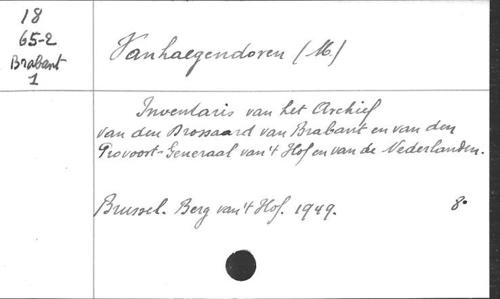 18
65-2
Brabant
1
Vanhaegendoren (M.)
Inventaris van het Archief
van den Drossaard van Brabant en van den
Provoost-Generaal van 't Hof en van de Nederlanden.
Brussel. Berg van 't Hof. 1949. 8°